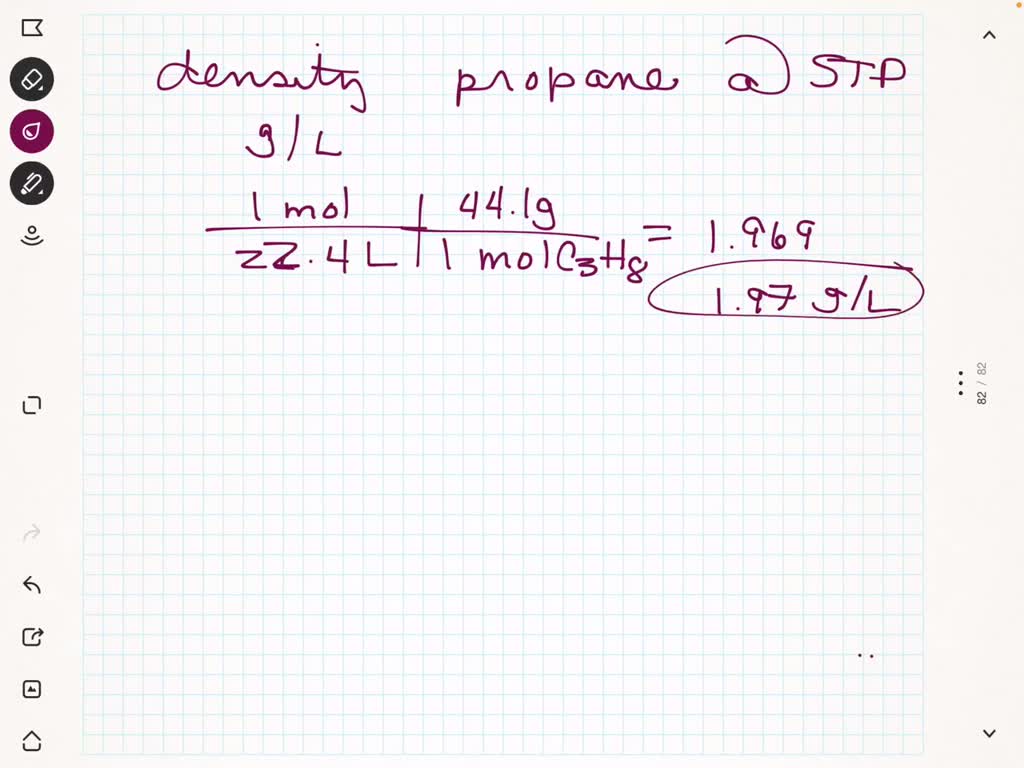 density propane @ STP
g/L
1 mol | 44.1g
22.4 L | 1 mol C₃H₈ = 1.969
1.97 g/L
82 / 82